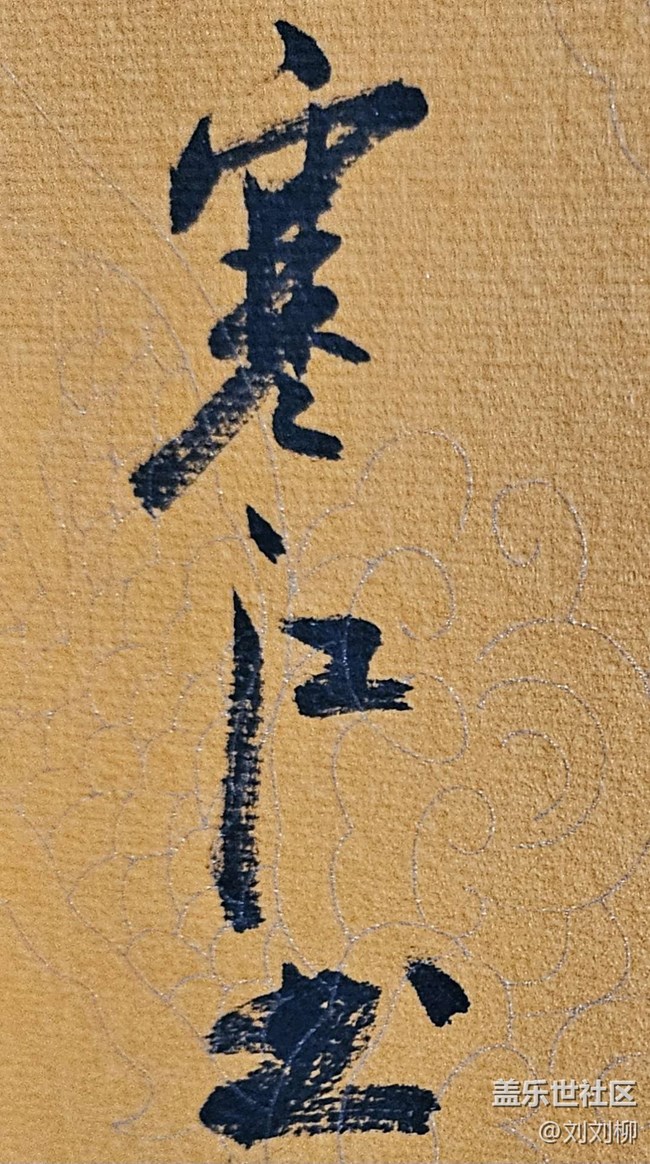 寒江书
盖乐世社区
@刘刘柳